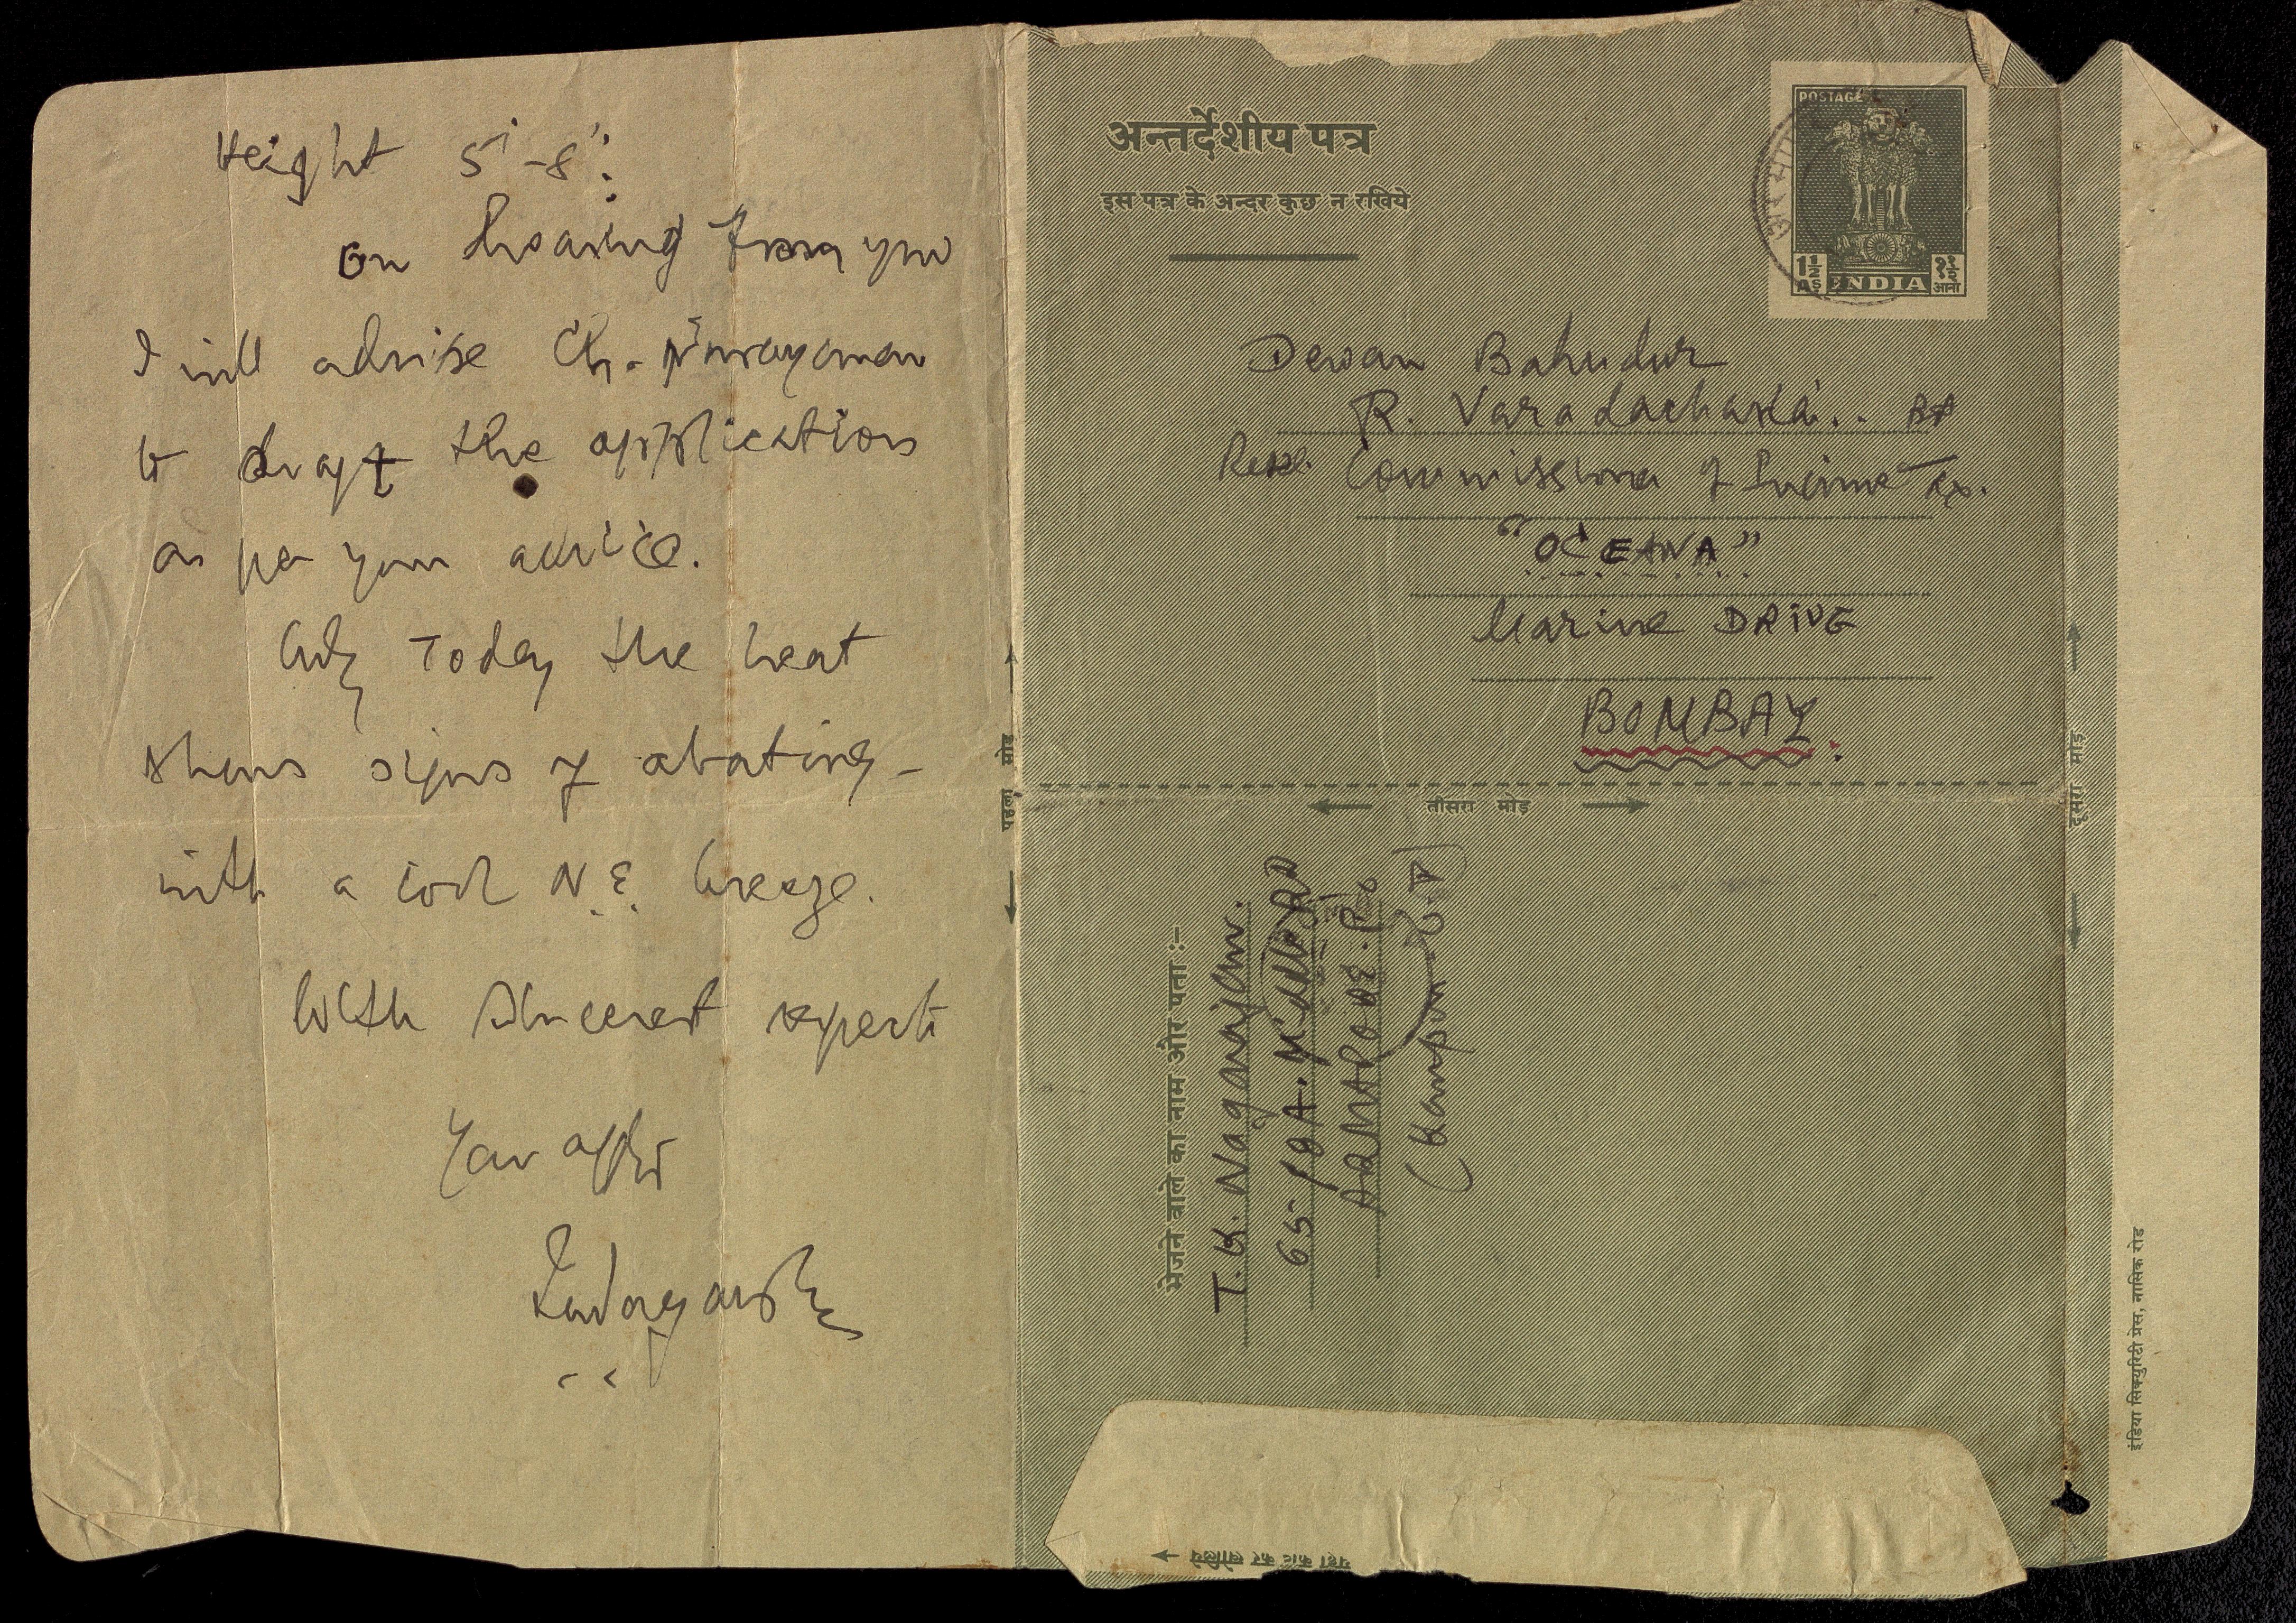 Height 5'-8":
on hearing from you
I will advise Ch. Narayanan
to draft the application
as per your advice.
Only Today the heat
shows signs of abating -
with a cool N.E. breeze.
With sincerest respects
Your affly
अन्तर्देशीय पत्र
इस पत्र के अन्दर कुछ न रखिये
POSTAGE
1½ As
INDIA
१½ आना
Dewan Bahudur
R. Varadachari..
Commissioner of Income Tax.
"OCEANA"
Marine DRIVE
BOMBAY:
पहला मोड़
तीसरा मोड़
दूसरा मोड़
भेजने वाले का नाम और पता :-
T.K. Nagarajan.
65-18A. Middle RD
ARMAPORE. P.O
(Kanpur - U.P)
यहां काट कर खोलिये
इंडिया सिक्युरिटी प्रेस, नासिक रोड